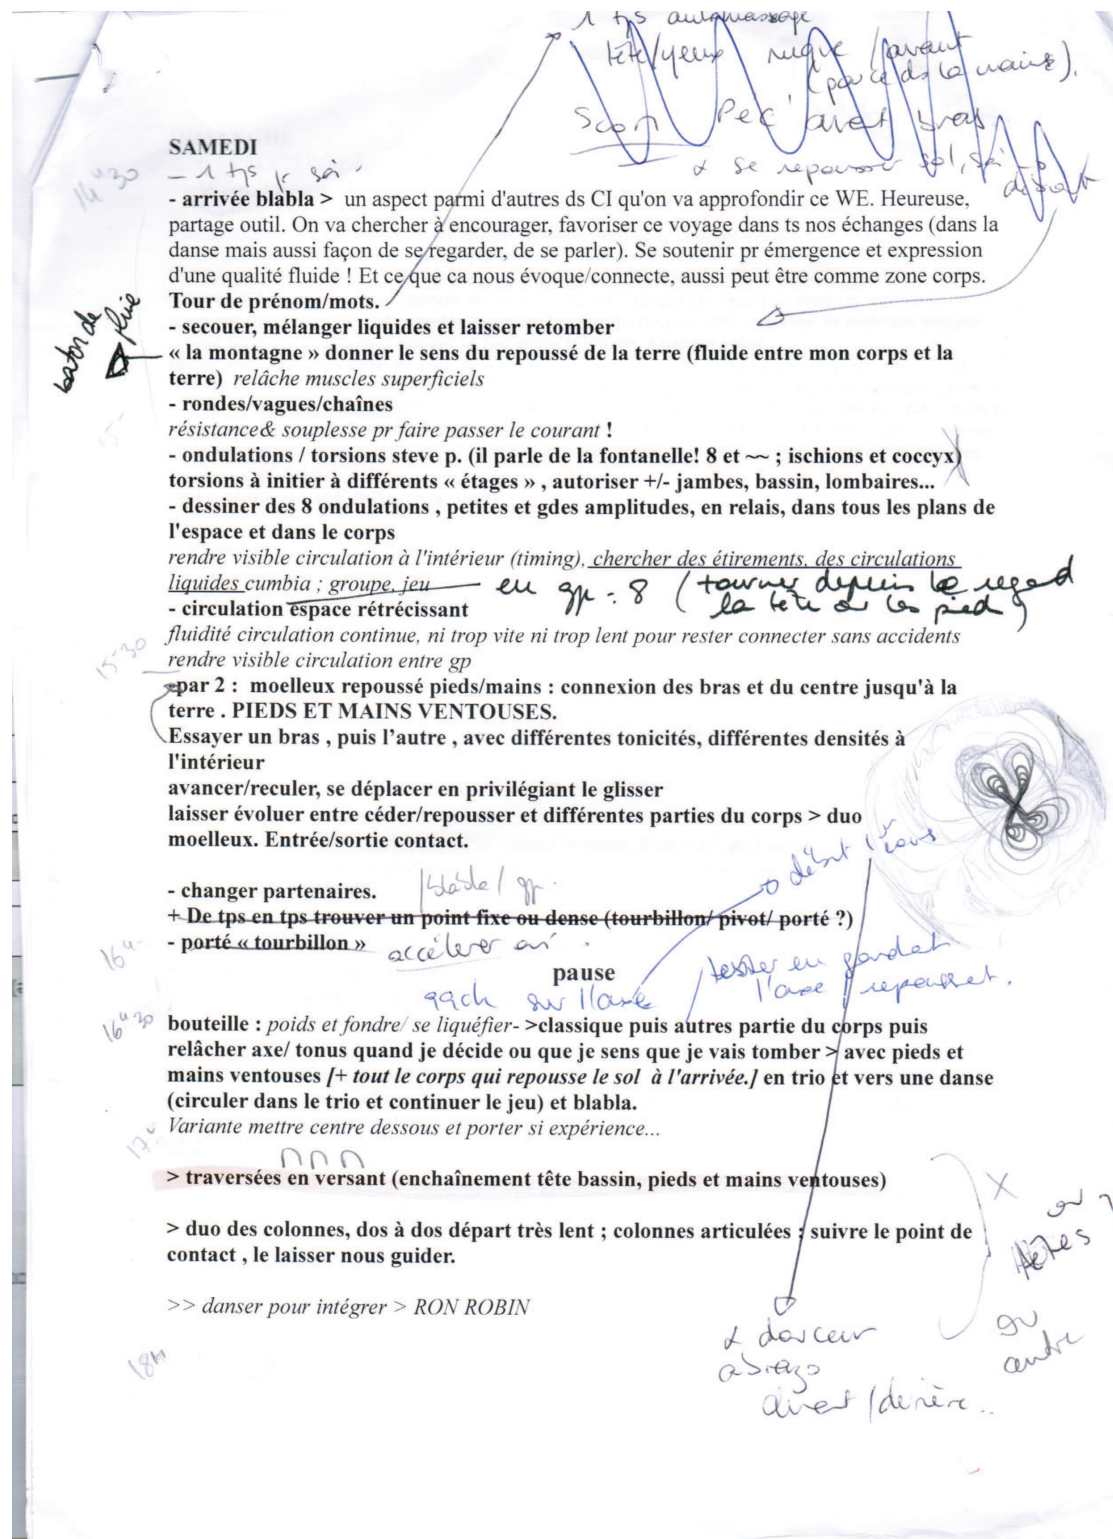 1 tps automassage
tête/yeux nuque / avant
(par ce ds la mains).
Scom Pec' avant bras
& se repousser sol, soi
départ
SAMEDI
14h30
- 1 tps pr soi.
- arrivée blabla > un aspect parmi d'autres ds CI qu'on va approfondir ce WE. Heureuse,
partage outil. On va chercher à encourager, favoriser ce voyage dans ts nos échanges (dans la
danse mais aussi façon de se regarder, de se parler). Se soutenir pr émergence et expression
d'une qualité fluide ! Et ce que ca nous évoque/connecte, aussi peut être comme zone corps.
Tour de prénom/mots.
- secouer, mélanger liquides et laisser retomber
baton de
pluie
« la montagne » donner le sens du repoussé de la terre (fluide entre mon corps et la
terre) relâche muscles superficiels
- rondes/vagues/chaînes
15-
résistance& souplesse pr faire passer le courant !
- ondulations / torsions steve p. (il parle de la fontanelle! 8 et ~~ ; ischions et coccyx)
torsions à initier à différents « étages » , autoriser +/- jambes, bassin, lombaires...
- dessiner des 8 ondulations , petites et gdes amplitudes, en relais, dans tous les plans de
l'espace et dans le corps
rendre visible circulation à l'intérieur (timing), chercher des étirements, des circulations
liquides cumbia ; groupe, jeu
en gp : 8 (tourner depuis le regard
la tête ou les pied)
- circulation espace rétrécissant
fluidité circulation continue, ni trop vite ni trop lent pour rester connecter sans accidents
15-30
rendre visible circulation entre gp
-par 2 : moelleux repoussé pieds/mains : connexion des bras et du centre jusqu'à la
terre . PIEDS ET MAINS VENTOUSES.
Essayer un bras , puis l’autre , avec différentes tonicités, différentes densités à
l'intérieur
avancer/reculer, se déplacer en privilégiant le glisser
laisser évoluer entre céder/repousser et différentes parties du corps > duo
moelleux. Entrée/sortie contact.
début 1er cours
- changer partenaires.
/blabla/ gp.
+ De tps en tps trouver un point fixe ou dense (tourbillon/ pivot/ porté ?)
16h-
- porté « tourbillon »
accélérer
pause
sur l'axe
tester en gardant
l'axe / repousset.
16h30
bouteille : poids et fondre/ se liquéfier- >classique puis autres partie du corps puis
relâcher axe/ tonus quand je décide ou que je sens que je vais tomber > avec pieds et
mains ventouses [+ tout le corps qui repousse le sol à l'arrivée.] en trio et vers une danse
(circuler dans le trio et continuer le jeu) et blabla.
Variante mettre centre dessous et porter si expérience...
17h
> traversées en versant (enchaînement tête bassin, pieds et mains ventouses)
> duo des colonnes, dos à dos départ très lent ; colonnes articulées ; suivre le point de
contact , le laisser nous guider.
ou
têtes
ou
centre
>> danser pour intégrer > RON ROBIN
18H
& douceur
abrazo
avant / derière..